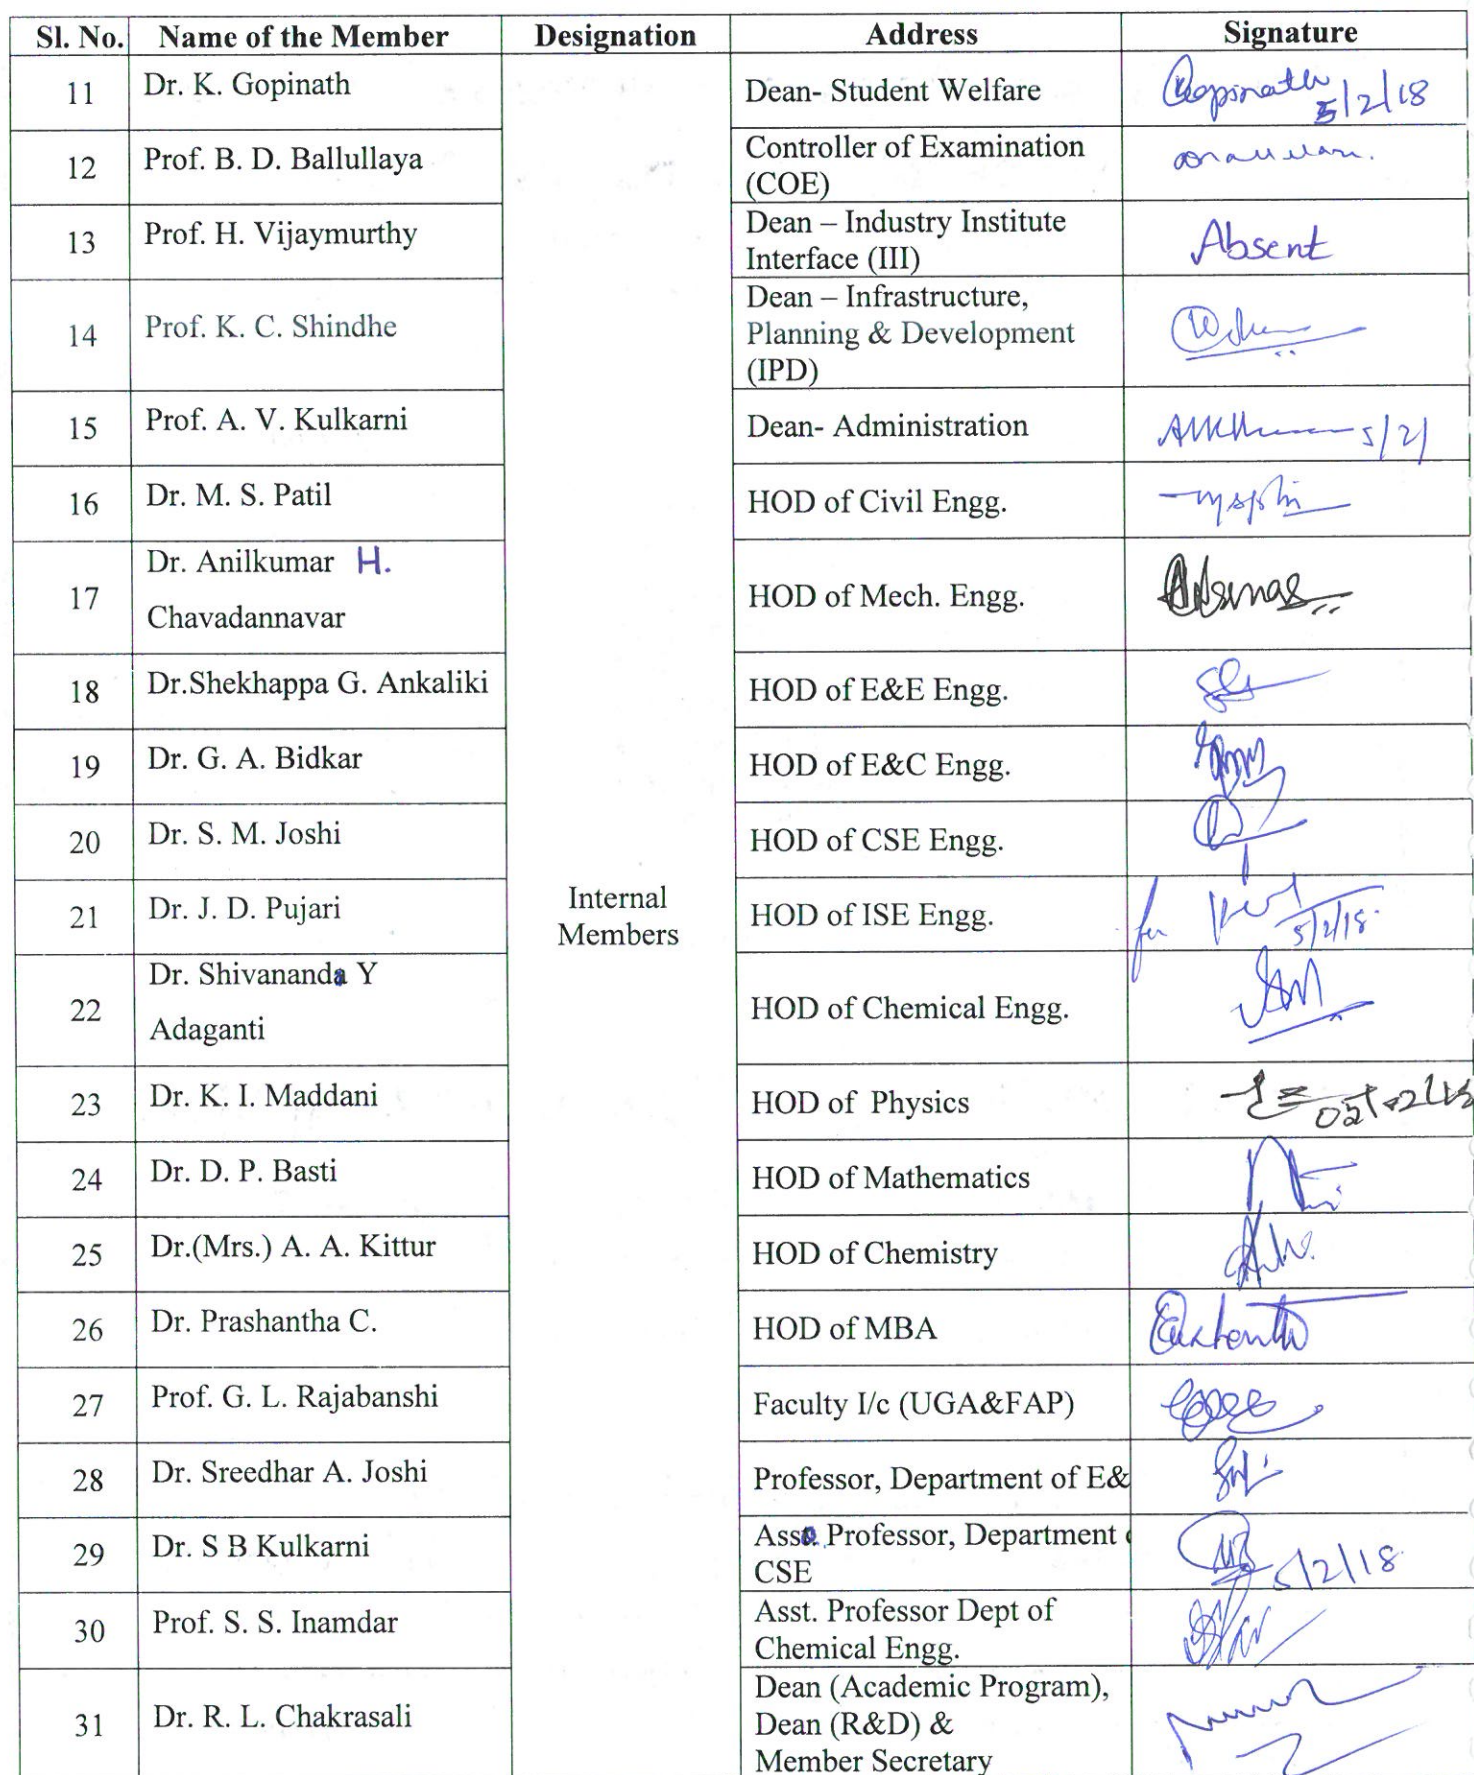 Sl. No. Name of the Member Designation Address Signature
11 Dr. K. Gopinath Dean- Student Welfare Gopinath 5/2/18
12 Prof. B. D. Ballullaya Controller of Examination
(COE)
13 Prof. H. Vijaymurthy Dean – Industry Institute
Interface (III) Absent
14 Prof. K. C. Shindhe Dean – Infrastructure,
Planning & Development
(IPD)
15 Prof. A. V. Kulkarni Dean- Administration 5/2/
16 Dr. M. S. Patil HOD of Civil Engg.
17 Dr. Anilkumar H.
Chavadannavar HOD of Mech. Engg.
18 Dr.Shekhappa G. Ankaliki HOD of E&E Engg.
19 Dr. G. A. Bidkar HOD of E&C Engg.
20 Dr. S. M. Joshi HOD of CSE Engg.
Internal
Members
21 Dr. J. D. Pujari HOD of ISE Engg. for 5/2/18
22 Dr. Shivananda Y
Adaganti HOD of Chemical Engg.
23 Dr. K. I. Maddani HOD of Physics
24 Dr. D. P. Basti HOD of Mathematics
25 Dr.(Mrs.) A. A. Kittur HOD of Chemistry
26 Dr. Prashantha C. HOD of MBA
27 Prof. G. L. Rajabanshi Faculty I/c (UGA&FAP)
28 Dr. Sreedhar A. Joshi Professor, Department of E&
29 Dr. S B Kulkarni Professor, Department
CSE 5/2/18
30 Prof. S. S. Inamdar Asst. Professor Dept of
Chemical Engg.
31 Dr. R. L. Chakrasali Dean (Academic Program),
Dean (R&D) &
Member Secretary